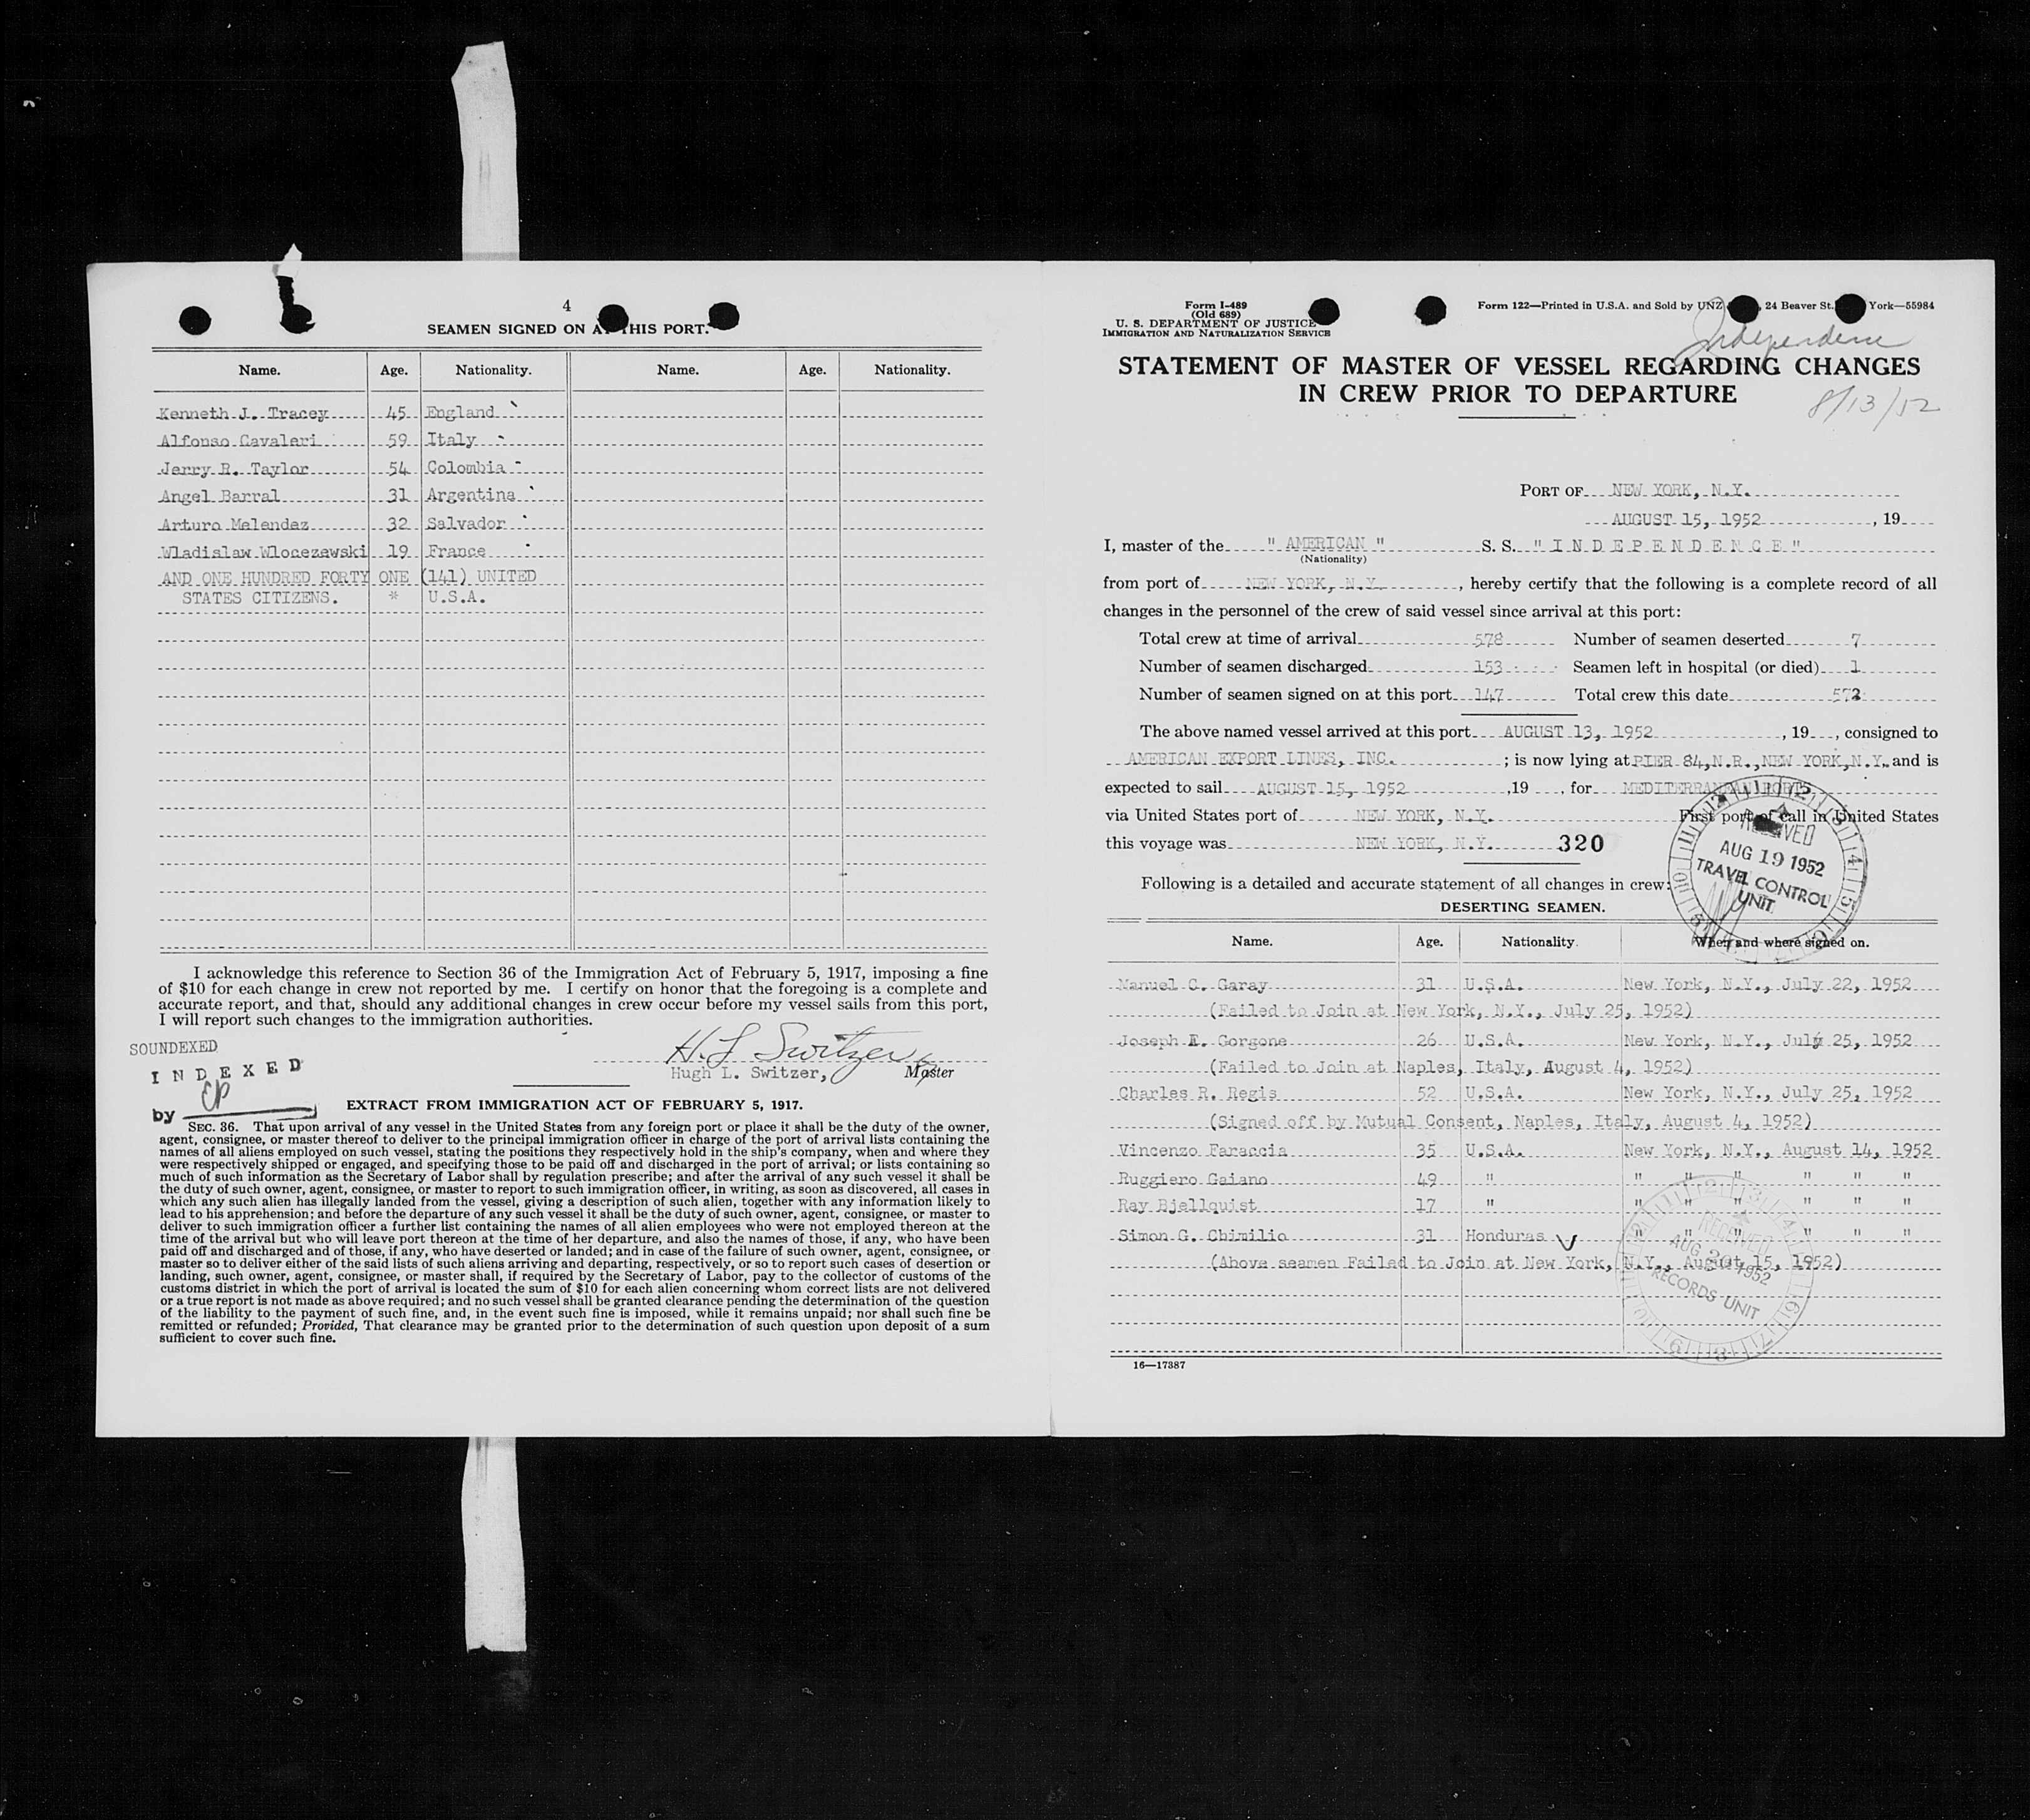 4
SEAMEN SIGNED ON AT THIS PORT.
Name. Age. Nationality. Name. Age. Nationality.
Kenneth J. Tracey 45 England
Alfonso Cavaleri 59 Italy
Jerry R. Taylor 54 Colombia
Angel Barral 31 Argentina
Arturo Melendez 32 Salvador
Wladislaw Wlocezewski 19 France
AND ONE HUNDRED FORTY ONE (141) UNITED
STATES CITIZENS. * U.S.A.
I acknowledge this reference to Section 36 of the Immigration Act of February 5, 1917, imposing a fine
of $10 for each change in crew not reported by me. I certify on honor that the foregoing is a complete and
accurate report, and that, should any additional changes in crew occur before my vessel sails from this port,
I will report such changes to the immigration authorities.
SOUNDEXED
H. L. Switzer
INDEXED
Hugh L. Switzer, Master
by EP
EXTRACT FROM IMMIGRATION ACT OF FEBRUARY 5, 1917.
SEC. 36. That upon arrival of any vessel in the United States from any foreign port or place it shall be the duty of the owner,
agent, consignee, or master thereof to deliver to the principal immigration officer in charge of the port of arrival lists containing the
names of all aliens employed on such vessel, stating the positions they respectively hold in the ship's company, when and where they
were respectively shipped or engaged, and specifying those to be paid off and discharged in the port of arrival; or lists containing so
much of such information as the Secretary of Labor shall by regulation prescribe; and after the arrival of any such vessel it shall be
the duty of such owner, agent, consignee, or master to report to such immigration officer, in writing, as soon as discovered, all cases in
which any such alien has illegally landed from the vessel, giving a description of such alien, together with any information likely to
lead to his apprehension; and before the departure of any such vessel it shall be the duty of such owner, agent, consignee, or master to
deliver to such immigration officer a further list containing the names of all alien employees who were not employed thereon at the
time of the arrival but who will leave port thereon at the time of her departure, and also the names of those, if any, who have been
paid off and discharged and of those, if any, who have deserted or landed; and in case of the failure of such owner, agent, consignee, or
master so to deliver either of the said lists of such aliens arriving and departing, respectively, or so to report such cases of desertion or
landing, such owner, agent, consignee, or master shall, if required by the Secretary of Labor, pay to the collector of customs of the
customs district in which the port of arrival is located the sum of $10 for each alien concerning whom correct lists are not delivered
or a true report is not made as above required; and no such vessel shall be granted clearance pending the determination of the question
of the liability to the payment of such fine, and, in the event such fine is imposed, while it remains unpaid; nor shall such fine be
remitted or refunded; Provided, That clearance may be granted prior to the determination of such question upon deposit of a sum
sufficient to cover such fine.
Form I-489
(Old 689)
U. S. DEPARTMENT OF JUSTICE
IMMIGRATION AND NATURALIZATION SERVICE
Form 122—Printed in U.S.A. and Sold by UNZ 24 Beaver St. York—55984
Independence
STATEMENT OF MASTER OF VESSEL REGARDING CHANGES
IN CREW PRIOR TO DEPARTURE
8/13/52
PORT OF NEW YORK, N.Y.
AUGUST 15, 1952, 19
I, master of the " AMERICAN " S. S. "INDEPENDENCE"
(Nationality)
from port of NEW YORK, N.Y., hereby certify that the following is a complete record of all
changes in the personnel of the crew of said vessel since arrival at this port:
Total crew at time of arrival 578 Number of seamen deserted 7
Number of seamen discharged 153 Seamen left in hospital (or died) 1
Number of seamen signed on at this port 147 Total crew this date 572
The above named vessel arrived at this port AUGUST 13, 1952, 19, consigned to
AMERICAN EXPORT LINES, INC.; is now lying at PIER 84, N.R., NEW YORK, N.Y. and is
expected to sail AUGUST 15, 1952, 19, for MEDITERRANEAN PORTS
via United States port of NEW YORK, N.Y. First port of call in United States
this voyage was NEW YORK, N.Y. 320
RECEIVED
AUG 19 1952
TRAVEL CONTROL
UNIT
Following is a detailed and accurate statement of all changes in crew:
DESERTING SEAMEN.
Name. Age. Nationality. When and where signed on.
Manuel C. Garay 31 U.S.A. New York, N.Y., July 22, 1952
(Failed to Join at New York, N.Y., July 25, 1952)
Joseph E. Gorgone 26 U.S.A. New York, N.Y., July 25, 1952
(Failed to Join at Naples, Italy, August 4, 1952)
Charles R. Regis 52 U.S.A. New York, N.Y., July 25, 1952
(Signed off by Mutual Consent, Naples, Italy, August 4, 1952)
Vincenzo Faraccia 35 U.S.A. New York, N.Y., August 14, 1952
Ruggiero Gaiano 49 " " " " " " "
Ray Bjellquist 17 " " " " " " "
Simon G. Chimilio 31 Honduras " " " " " "
(Above seamen Failed to Join at New York, N.Y., August 15, 1952)
RECEIVED
AUG 20 1952
RECORDS UNIT
16—17387